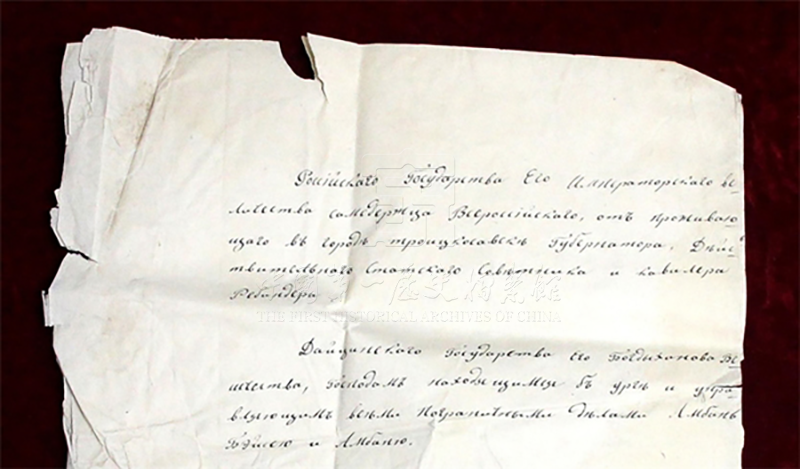 Россійскаго Государства Его Императорскаго ве-
личества самодержца Всероссійскаго, отъ проживаю
щаго въ городѣ троицкосавскѣ Губернатора, Дѣйс
твительнаго Статскаго Совѣтника и кавалера
Ребиндера
中国第一历史档案馆
THE FIRST HISTORICAL ARCHIVES OF CHINA
Дайцинскаго Государства Его Богдыханова Ве-
личества, Господамъ находящимся въ ургѣ и упра
вляющимъ всѣми пограничными дѣлами Амбань
и Амбаню.